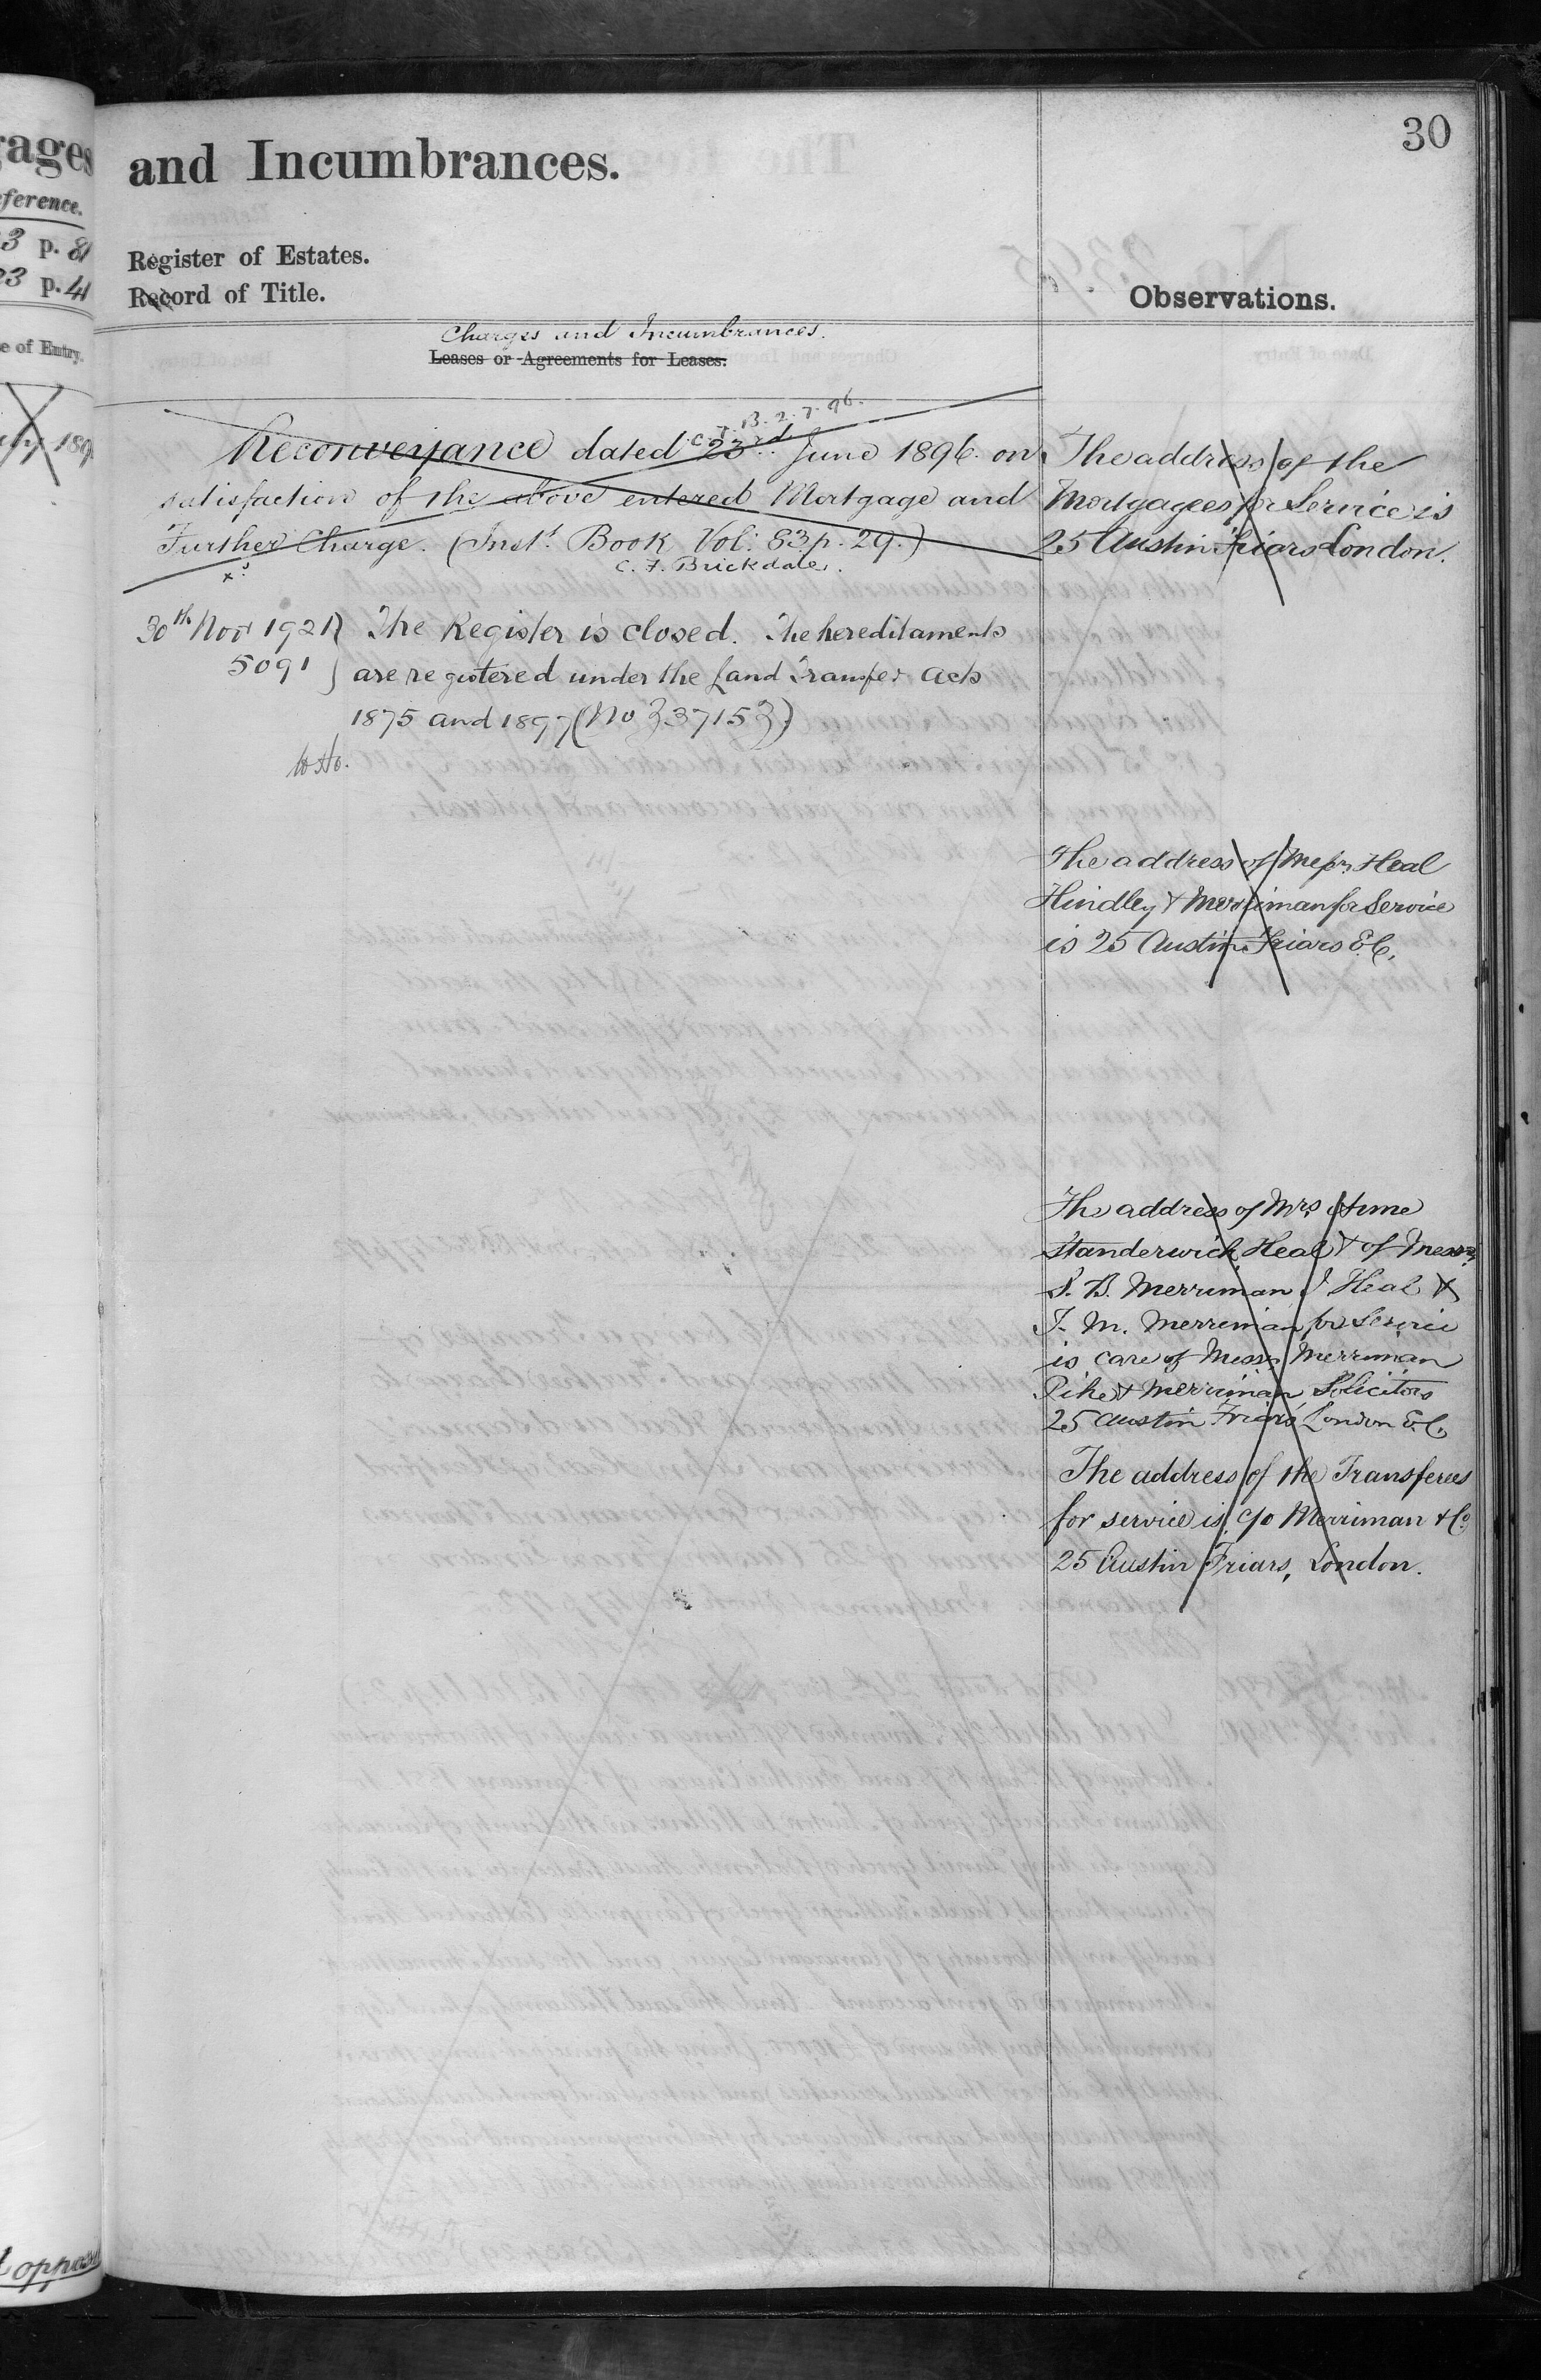 30
and Incumbrances.
Register of Estates.
Record of Title.
Observations.
Charges and Incumbrances.
Leases or Agreements for Leases.
C. F. B. 2. 7. 96.
Reconveyance dated 23rd June 1896 on
satisfaction of the above entered Mortgage and
Further Charge. (Inst. Book Vol. 83 p. 29.)
C. F. Brickdale.
30th Nov 1921 } The Register is closed. The hereditaments
5091 } are registered under the Land Transfer Acts
1875 and 1897 (No 237152)
The address of the
Mortgagees for Service is
25 Austin Friars London.
The address of Messrs Heal
Hindley & Merriman for Service
is 25 Austin Friars E.C.
The address of Mrs
Standerwick Heal & of Messrs
S. B. Merriman J Heal &
J. M. Merriman for Service
is care of Messrs Merriman
Pike & Merriman Solicitors
25 Austin Friars London E.C.
The address of the Transferees
for service is c/o Merriman & Co
25 Austin Friars, London.
gages
eference.
3 p. 81
23 p. 41
e of Entry.
189
oppos